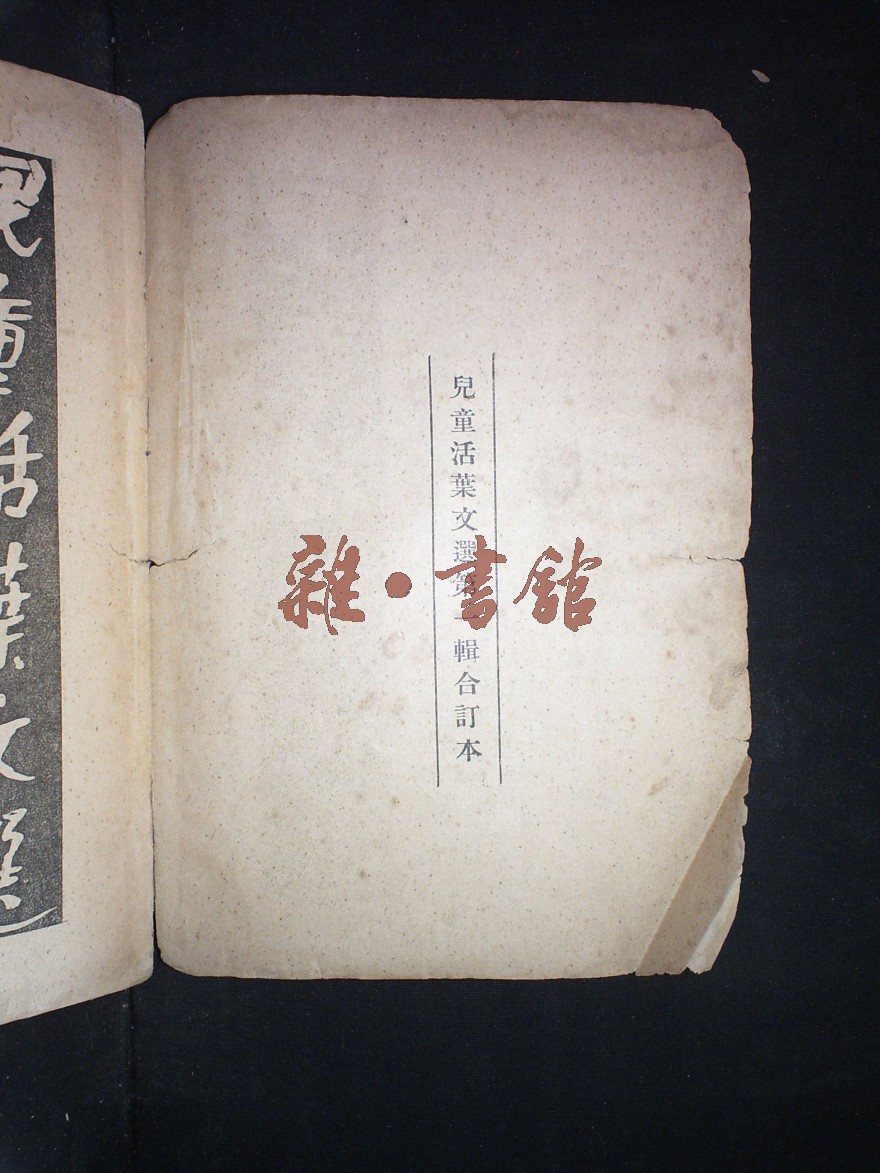 兒童活葉文選第一輯合訂本
雜·書館
兒童活葉文選